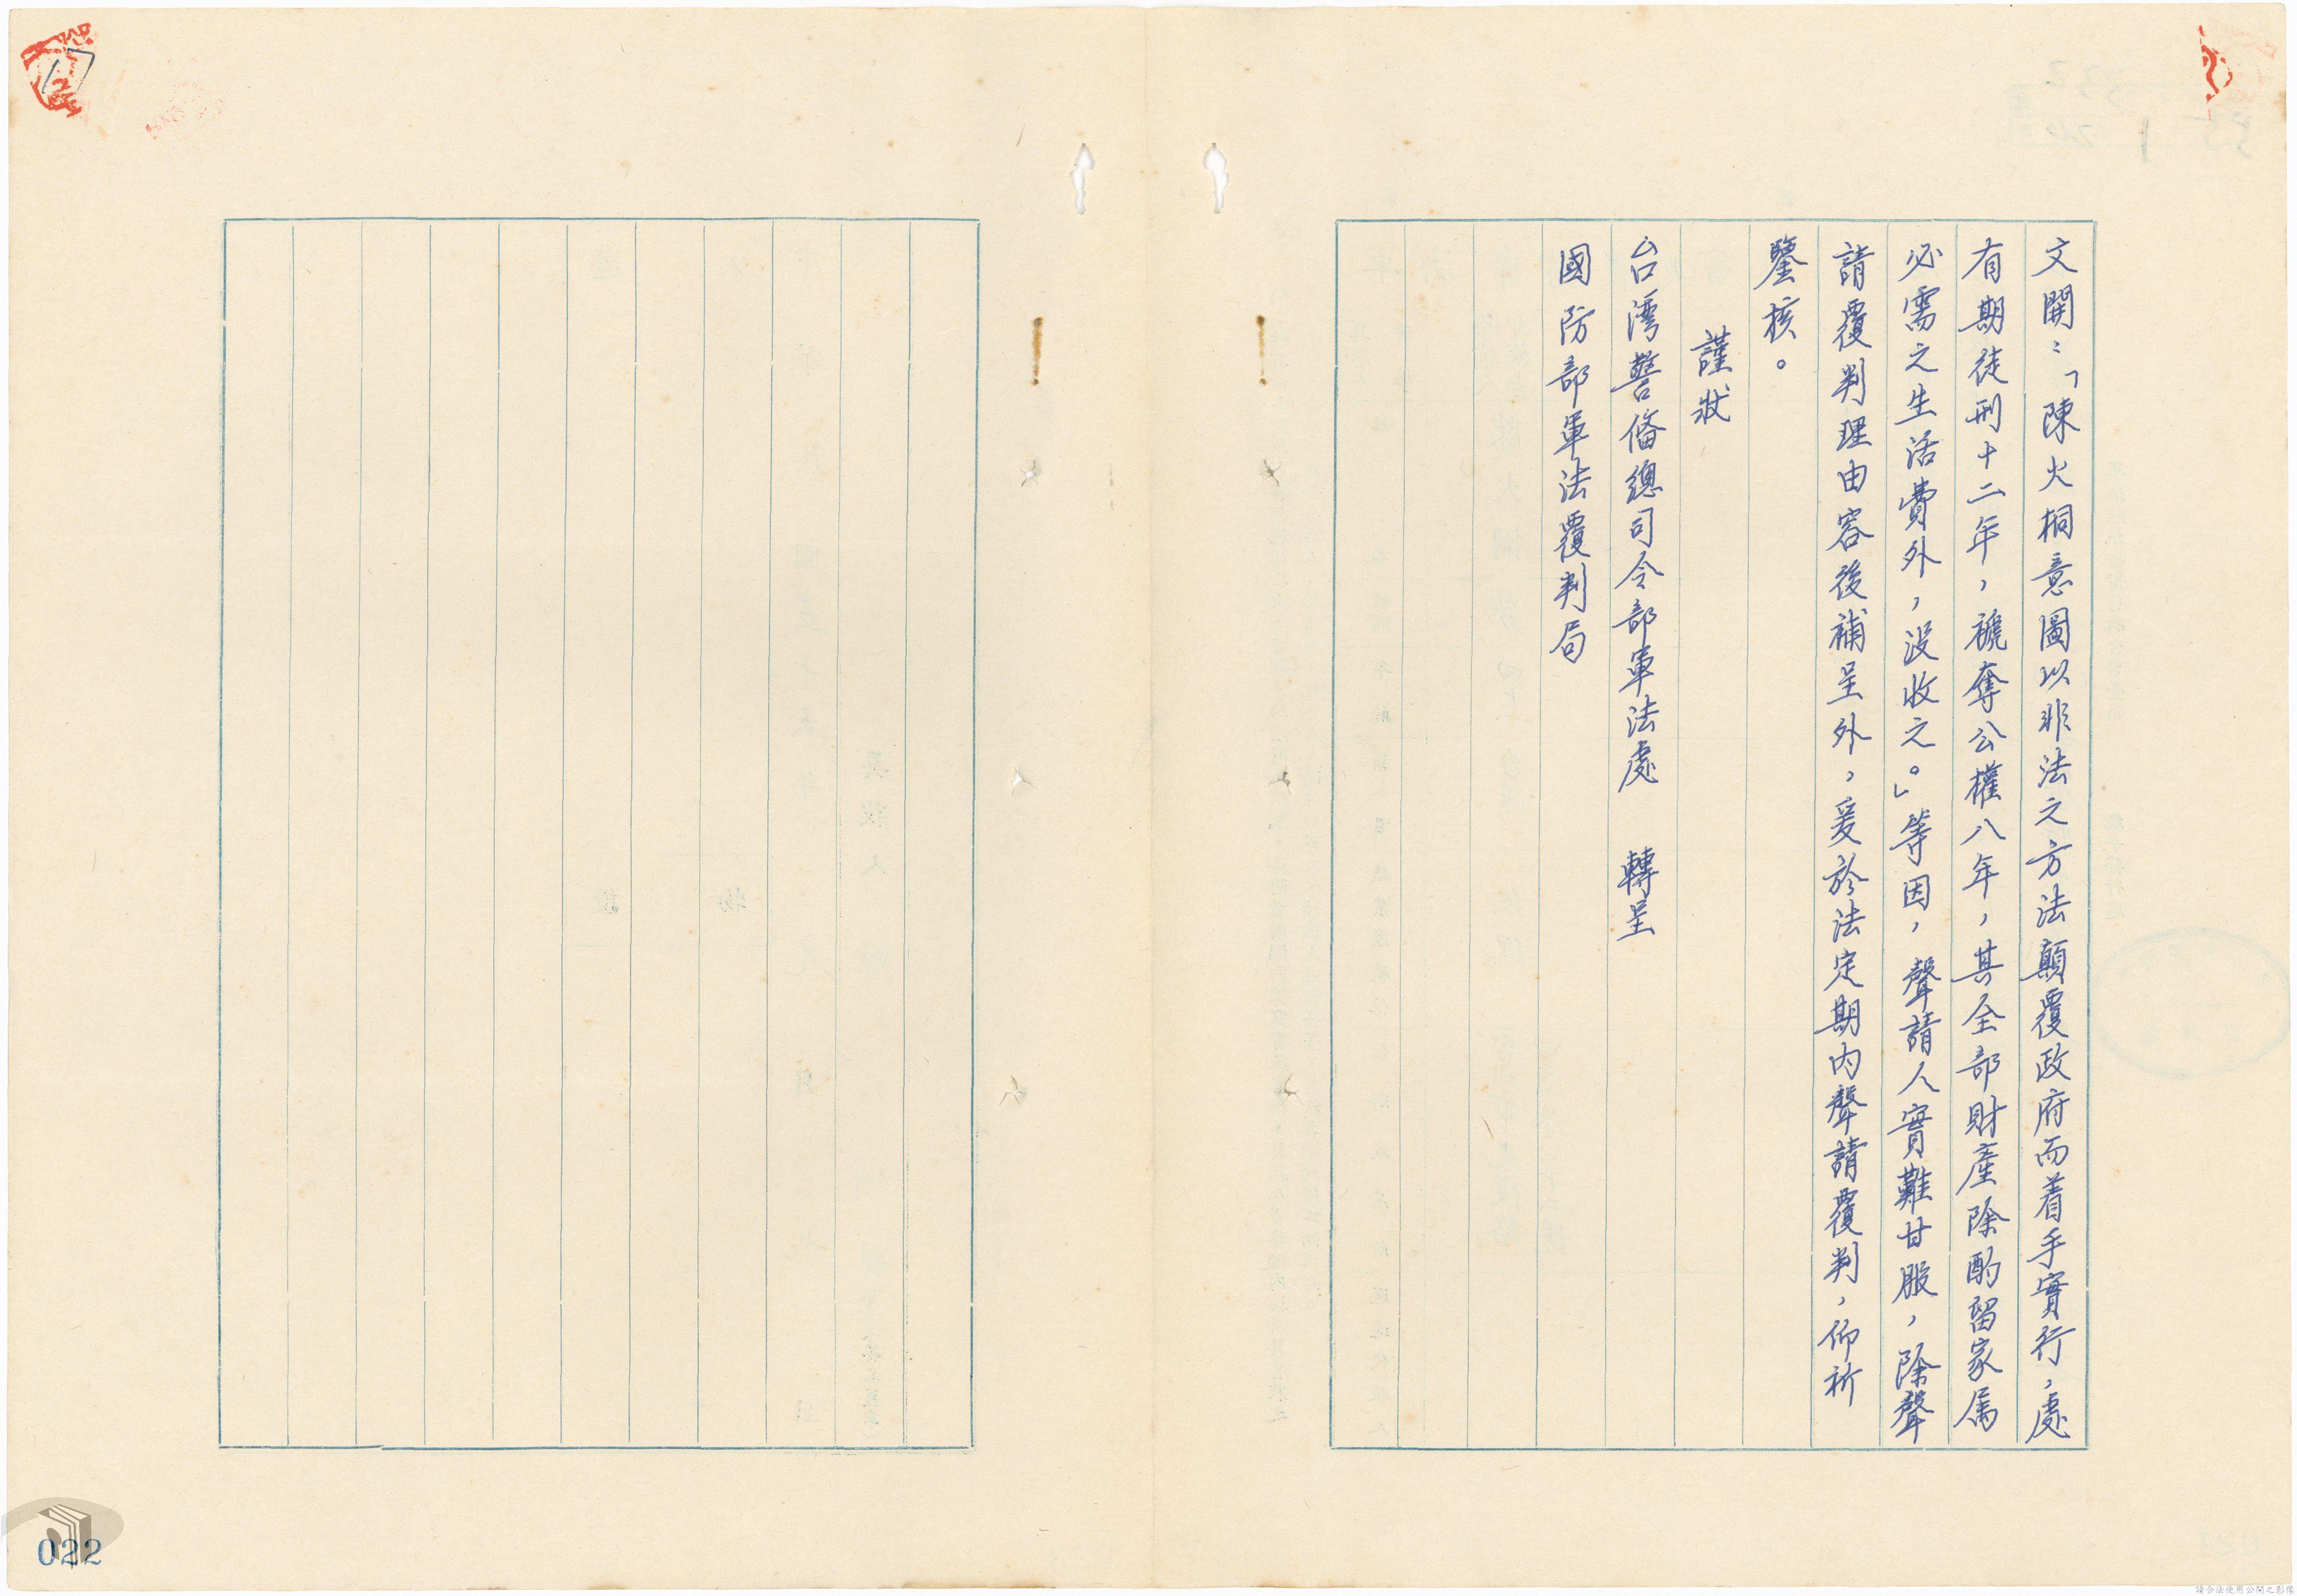 文開：「陳火桐意圖以非法之方法顛覆政府而着手實行，處
有期徒刑十二年，褫奪公權八年，其全部財產除酌留家属
必需之生活費外，沒收之。」等因，聲請人實難甘服，除聲
請覆判理由容後補呈外，爰於法定期內聲請覆判，仰祈
鑒核。
謹狀
台湾警俻總司令部軍法處　轉呈
國防部軍法覆判局
17
022
請合法使用公開之影像